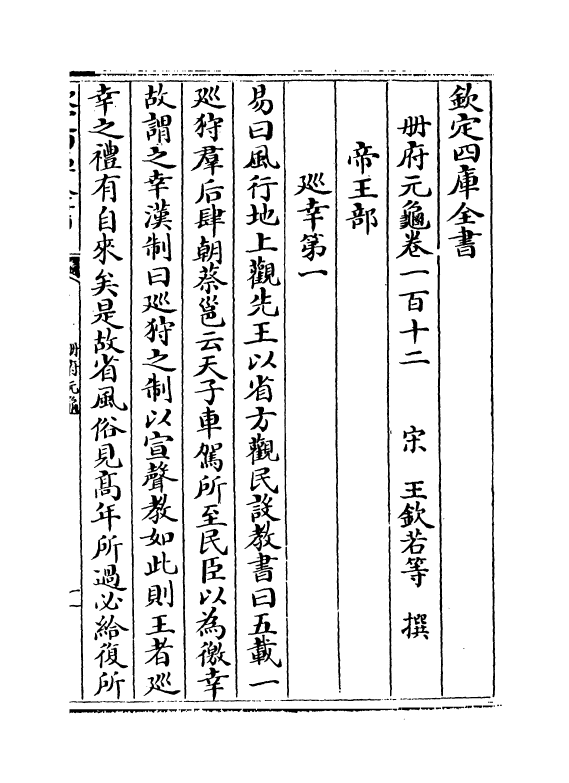 欽定四庫全書
册府元龜卷一百十二　宋　王欽若等　撰
帝王部
巡幸第一
易曰風行地上觀先王以省方觀民設教書曰五載一
巡狩羣后肆朝蔡邕云天子車駕所至民臣以為徼幸
故謂之幸漢制曰巡狩之制以宣聲教如此則王者巡
幸之禮有自來矣是故省風俗見高年所過必給復所
册府元龜
一